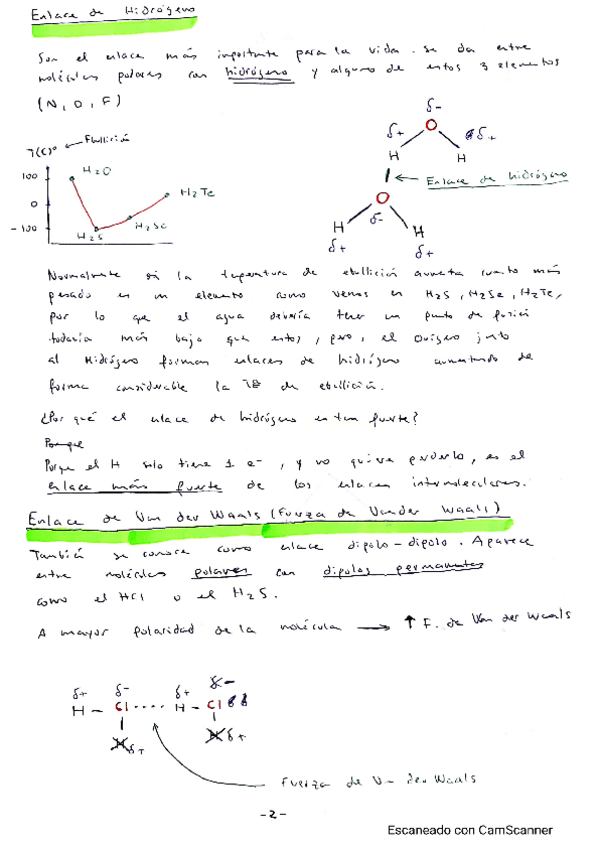 Enlace de Hidrógeno
Son el enlace más importante para la vida. Se da entre
moléculas polares con hidrógeno y alguno de estos 3 elementos
(N, O, F)
T(Cº) ← Ebullición
100
0
-100
H2O
H2S
H2Se
H2Te
δ-
O
δ+
δ+
H
H
← Enlace de hidrógeno
O
δ-
H
H
δ+
δ+
Normalmente si la temperatura de ebullición aumenta cuanto más
pesado es un elemento como vemos en H2S, H2Se, H2Te,
por lo que el agua debería tener un punto de fusión
todavía más bajo que estos, pero, el Oxígeno junto
al Hidrógeno forman enlaces de hidrógeno aumentando de
forma considerable la Tª de ebullición.
¿Por qué el enlace de hidrógeno es tan fuerte?
Porque
Porque el H solo tiene 1 e-, y no quiere perderlo, es el
enlace más fuerte de los enlaces intermoleculares.
Enlace de Van der Waals (Fuerza de Vander Waals)
También se conoce como enlace dipolo-dipolo. Aparece
entre moléculas polares con dipolos permanentes
como el HCl o el H2S.
A mayor polaridad de la molécula → ↑ F. de Van der Waals
δ+ δ- δ+ δ-
H - Cl ···· H - Cl
H δ+ H δ+
Fuerza de Van der Waals
-2-
Escaneado con CamScanner